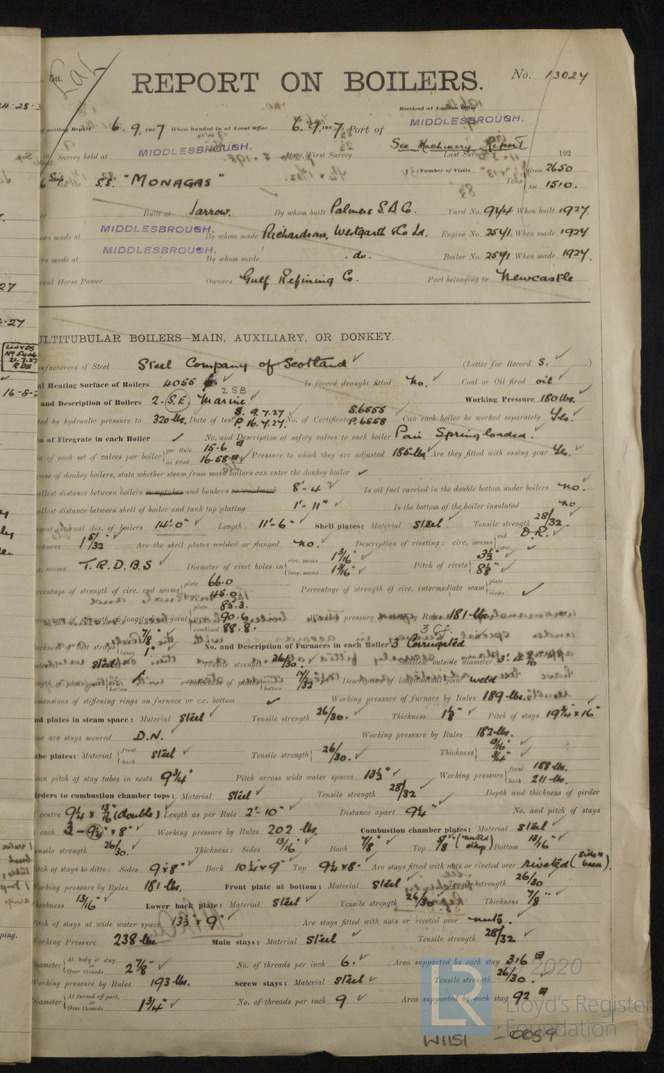 REPORT ON BOILERS.
No. 13024
Received at London Office
writing Report 6.9.1927 When handed in at Local Office 6.9.1927 Port of MIDDLESBROUGH.
Survey held at MIDDLESBROUGH. Date, First Survey See Machinery Report Last Survey 192
(Number of Visits
S.S. "MONAGAS" Tons Gross 2650
Net 1510.
Built at Jarrow. By whom built Palmers S.& C. Yard No. 944 When built 1927.
made at MIDDLESBROUGH. By whom made Richardsons, Westgarth & Co Ld. Engine No. 2541. When made 1927
made at MIDDLESBROUGH. By whom made do. Boiler No. 2541 When made 1927.
Horse Power Owners Gulf Refining Co. Port belonging to Newcastle
MULTITUBULAR BOILERS—MAIN, AUXILIARY, OR DONKEY.
Manufacturers of Steel Steel Company of Scotland (Letter for Record S. )
Heating Surface of Boilers 4055 Is forced draught fitted No. Coal or Oil fired oil
2 SB
and Description of Boilers 2. S.E. Marine Working Pressure 180 lbs.
by hydraulic pressure to 320 lbs. Date of test S. 9.7.27 P. 16.7.27. No. of Certificate S6555 P.6558 Can each boiler be worked separately Yes.
of Firegrate in each Boiler No. and Description of safety valves to each boiler Pair Spring loaded.
of each set of valves per boiler per Rule 15.6 as fitted 16.58 Pressure to which they are adjusted 185 lbs Are they fitted with easing gear Yes.
case of donkey boilers, state whether steam from main boilers can enter the donkey boiler
smallest distance between boilers or uptakes and bunkers or woodwork 8'-4" Is oil fuel carried in the double bottom under boilers No.
smallest distance between shell of boiler and tank top plating 1'-11" Is the bottom of the boiler insulated no
largest internal dia. of boilers 14'-0" Length 11'-6" Shell plates: Material Steel Tensile strength 28/32.
Thickness 1 5/32 Are the shell plates welded or flanged No. Description of riveting: circ. seams end D.R.
long. seams T.R.D.B.S Diameter of rivet holes in circ. seams 1 3/16 long. seams 1 3/16 Pitch of rivets
percentage of strength of circ. end seams plate 66.0 rivet 45.0 Percentage of strength of circ. intermediate seam plate rivets
plate 85.3
rivet 90.6
combined 88.8
pressure by Rules 181 lbs.
3 CF.
7/8 1" No. and Description of Furnaces in each Boiler 3 Corrugated
Steel 26/30. outside diameter
bottom 17/32 weld
dimensions of stiffening rings on furnace or c.c. bottom Working pressure of furnace by Rules 189 lbs.
End plates in steam space: Material Steel Tensile strength 26/30. Thickness 1 1/8" Pitch of stays 19 3/4 x 16"
How are stays secured D.N. Working pressure by Rules 182 lbs.
Tube plates: Material front back Steel Tensile strength 26/30. Thickness 13/16 3/4
Mean pitch of stay tubes in nests 9 3/4" Pitch across wide water spaces 13 1/2" Working pressure front 188 lbs. back 211 lbs.
Girders to combustion chamber tops: Material Steel Tensile strength 28/32 Depth and thickness of girder
centre 9 1/4 x 13/16 (double) Length as per Rule 2'-10" Distance apart 9 1/4" No. and pitch of stays
each 2-9 1/2" x 8" Working pressure by Rules 202 lbs. Combustion chamber plates: Material Steel
Tensile strength 26/30. Thickness: Sides 13/16 Back 7/8 Top 5/8 (nutted stays) Bottom 13/16
Pitch of stays to ditto: Sides 9 x 8" Back 10 1/2 x 9" Top 9 1/2 x 8" Are stays fitted with nuts or riveted over riveted (sides & back).
Working pressure by Rules 181 lbs. Front plate at bottom: Material Steel Tensile strength 26/30
Thickness 13/16" Lower back plate: Material Steel Tensile strength 26/30 Thickness 7/8"
Pitch of stays at wide water space 13 1/2 x 9" Are stays fitted with nuts or riveted over nuts.
Working Pressure 238 lbs Main stays: Material Steel Tensile strength 28/32
Diameter At body of stay, or Over threads 2 7/8" No. of threads per inch 6. Area supported by each stay 316
Working pressure by Rules 193 lbs. Screw stays: Material Steel Tensile strength 26/30.
Diameter At turned off part, or Over threads 1 3/4" No. of threads per inch 9 Area supported by each stay 92
LR
© 2020
Lloyd's Register
Foundation
W1151 -0059